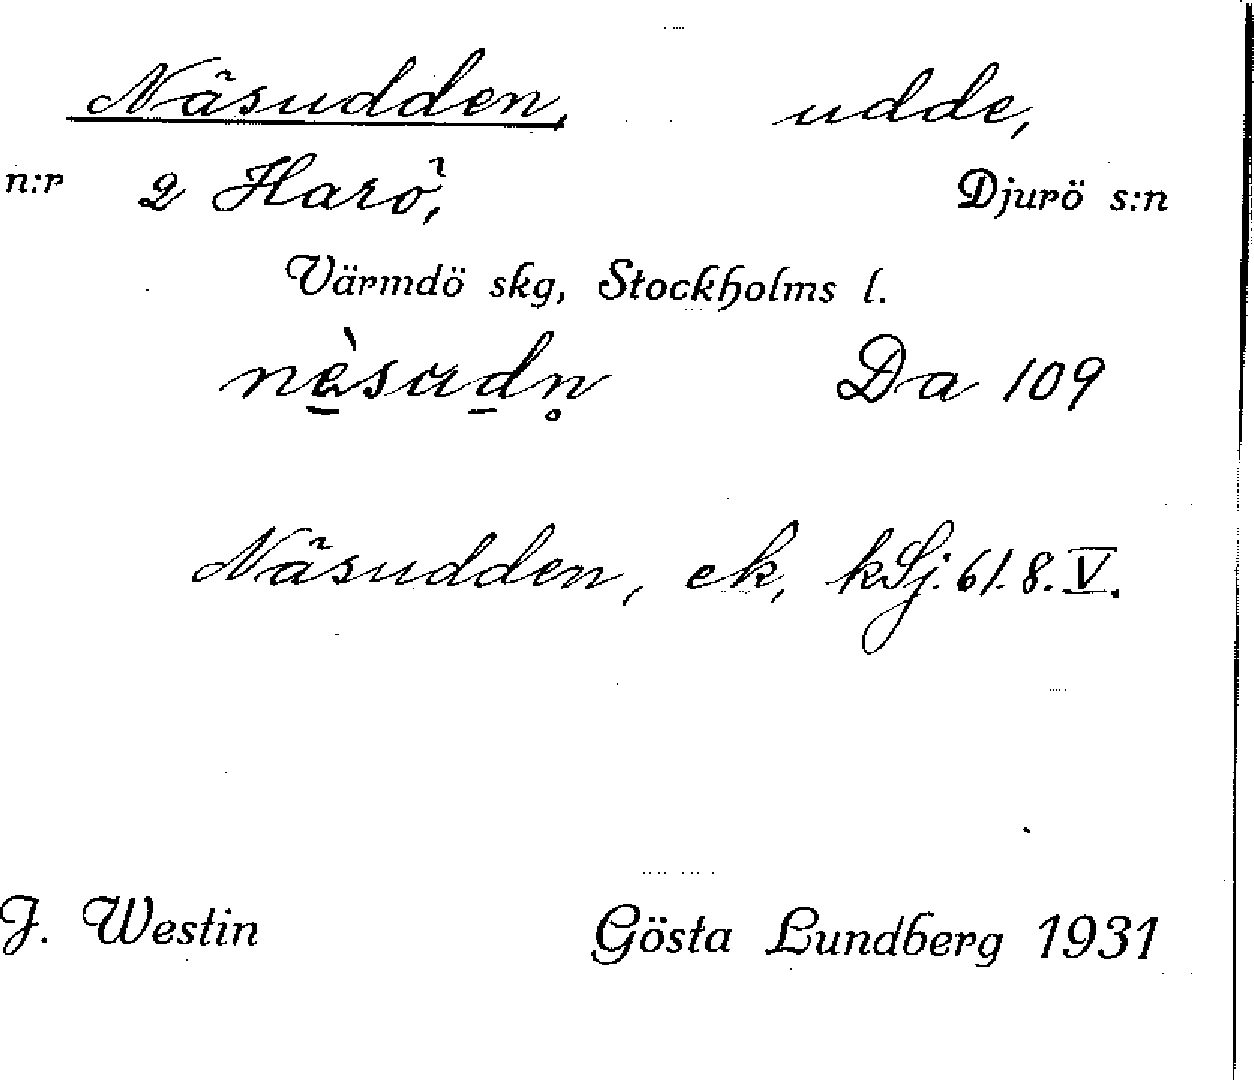 Näsudden, udde,
n:r 2 Harö, Djurö s:n
Värmdö skg, Stockholms l.
nὲsadn̥ Da 109
Näsudden, ek, kSj. 61. 8. V.
J. Westin Gösta Lundberg 1931